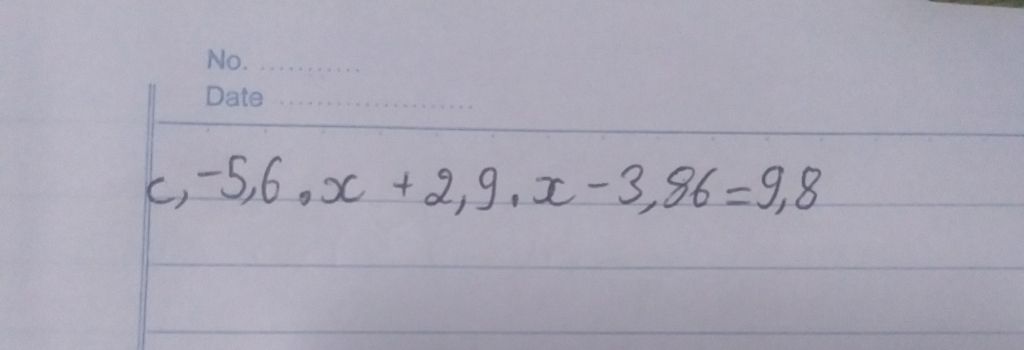 No. ...........
Date .....................
c, -5,6 . x + 2,9 . x - 3,86 = 9,8